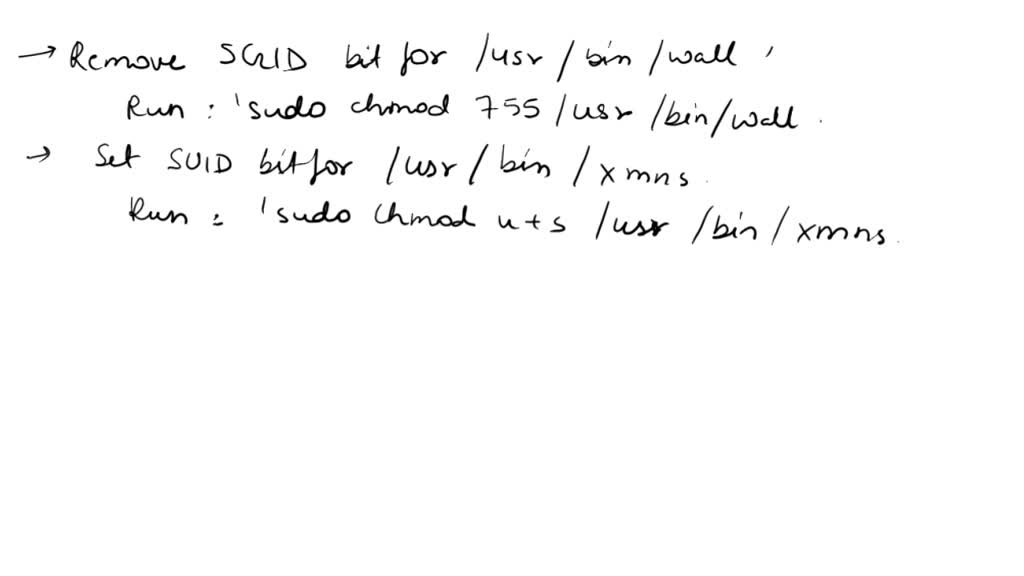 → Remove SGID bit for /usr/bin/wall '
Run : 'sudo chmod 755 /usr/bin/wall .
→ Set SUID bit for /usr/bin/xmns .
Run : 'sudo chmod u+s /usr/bin/xmns .